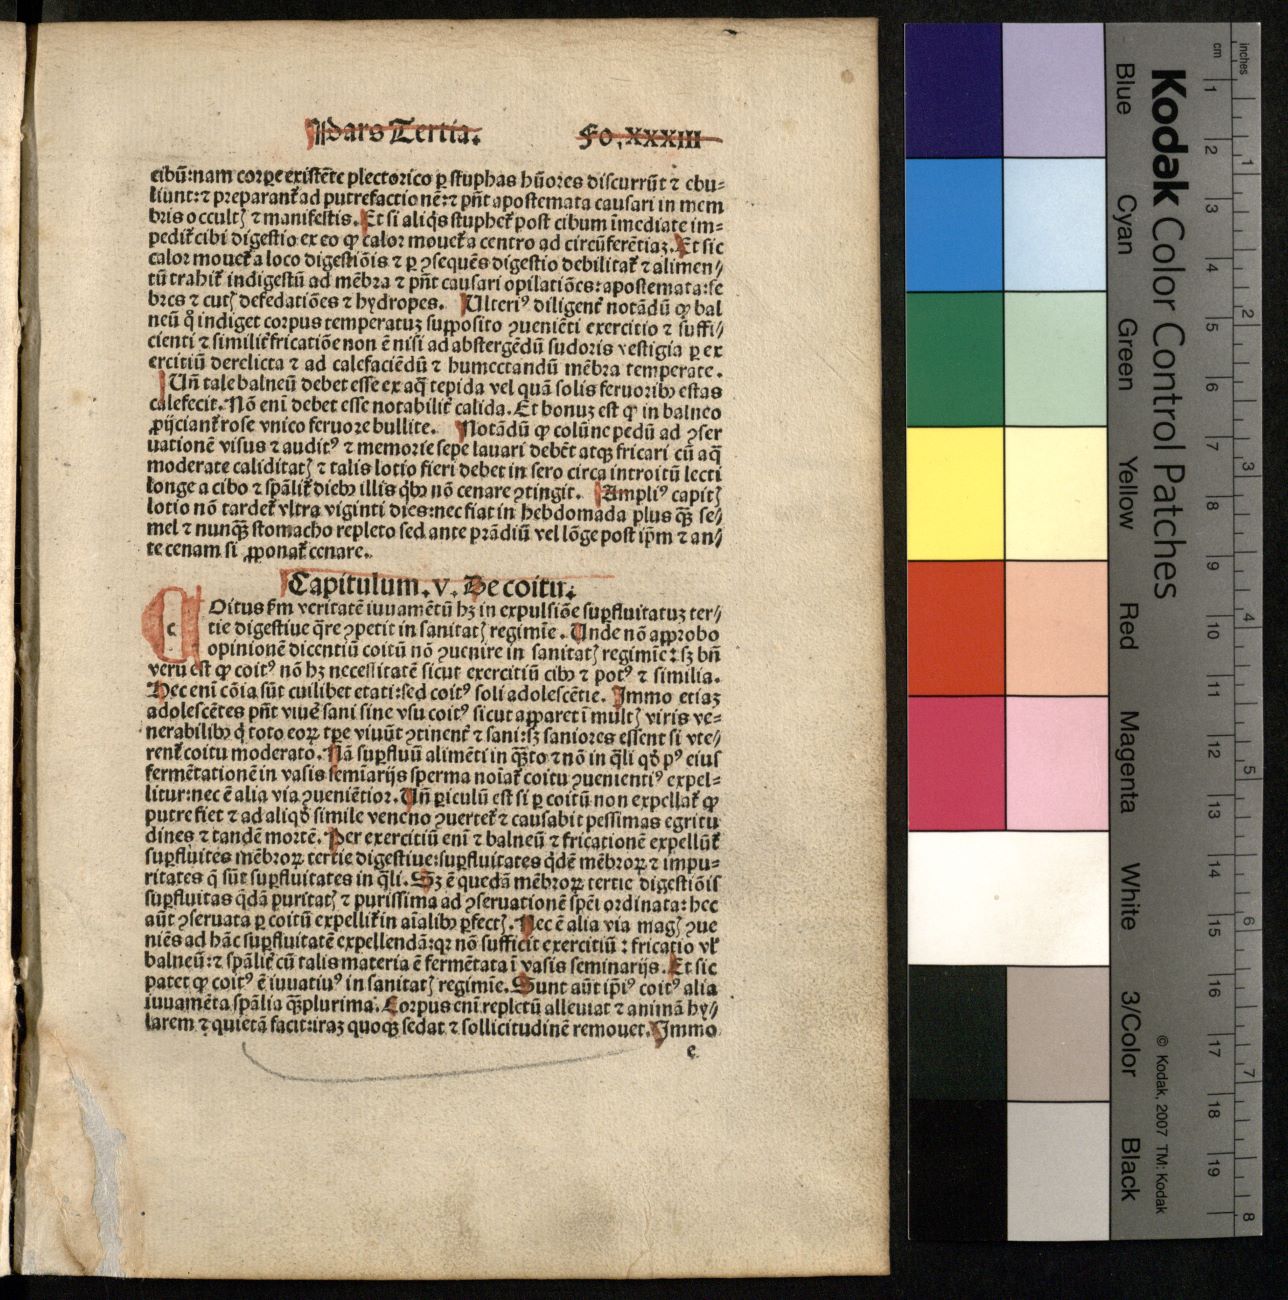 Pars Tertia.
Fo. XXXIII
cibũ:nam corpe existẽte plectorico ꝑ stuphas hũores discurrũt ⁊ ebu-
liunt:⁊ preparant᷑ ad putrefactionẽ:⁊ pñt apostemata causari in mem
bris occultꝭ ⁊ manifestis. Et si aliq̇s stuphet᷑ post cibum ĩmediate im-
pedit᷑ cibi digestio ex eo ꝙ calor mouet᷑ a centro ad circũferẽtiaꝫ. Et sic
calor mouet᷑ a loco digestiõis ⁊ ꝑ ꝯsequẽs digestio debilitat᷑ ⁊ alimen/
tũ trahit᷑ indigestũ ad mẽbra ⁊ pñt causari opilatiões:apostemata:fe
bres ⁊ cutꝭ defedatiões ⁊ hydropes. Ulteriꝰ diligent᷑ notãdũ ꝙ bal
neũ q̊ indiget corpus temperatuꝫ supposito ꝯueniẽti exercitio ⁊ suffi/
cienti ⁊ similit᷑ fricatiõe non ẽ nisi ad abstergẽdũ sudoris vestigia ꝑ ex
ercitiũ derelicta ⁊ ad calefaciẽdũ ⁊ humectandũ mẽbra temperate.
Uñ tale balneũ debet esse ex aq̃ tepida vel quã solis feruoribꝰ estas
calefecit. Nõ eni debet esse notabilit᷑ calida. Et bonuꝫ est ꝙ in balneo
ꝓijciant᷑ rose vnico feruore bullite. Notãdũ ꝙ colũne pedũ ad ꝯser
uationẽ visus ⁊ auditꝰ ⁊ memorie sepe lauari debẽt atqꝫ fricari cũ aq̃
moderate caliditatꝭ ⁊ talis lotio fieri debet in sero circa introitũ lecti
longe a cibo ⁊ spãlit᷑ diebꝰ illis q̇bꝰ nõ cenare ꝯtingit. Ampliꝰ capitꝭ
lotio nõ tardet᷑ vltra viginti dies:nec fiat in hebdomada plus qꝫ̃ se/
mel ⁊ nunqꝫ̃ stomacho repleto sed ante prãdiũ vel lõge post ip̃m ⁊ an/
te cenam si ꝓponat᷑ cenare.
Capitulum. v. De coitu.
c Oitus ẞm veritatẽ iuuamẽtũ hꝫ in expulsiõe suꝑfluitatuꝫ ter/
tie digestiue q̃re ꝯpetit in sanitatꝭ regimĩe. Unde nõ approbo
opinionẽ dicentiũ coitũ nõ ꝯuenire in sanitatꝭ regimĩe:sꝫ bñ
verũ est ꝙ coitꝰ nõ hꝫ necessitatẽ sicut exercitiũ cibꝰ ⁊ potꝰ ⁊ similia.
Hec eni cõia sũt cuilibet etati:sed coitꝰ soli adolescẽtie. Immo etiaꝫ
adolescẽtes pñt viuẽ sani sine vsu coitꝰ sicut apparet ĩ multꝭ viris ve-
nerabilibꝰ q̇ toto eoꝝ tpe viuũt ꝯtinent᷑ ⁊ sani:sꝫ saniores essent si vte/
rent᷑ coitu moderato. Nã suꝑfluũ alimẽti in qꝫ̃to ⁊ nõ in q̃li qđ pꝰ eius
fermẽtationẽ in vasis semĩarijs sperma noĩat᷑ coitu ꝯuenientiꝰ expel-
litur:nec ẽ alia via ꝯueniẽtior. Uñ ꝑiculũ est si ꝑ coitũ non expellat᷑ ꝙ
putrefiet ⁊ ad aliqđ simile veneno ꝯuertet᷑ ⁊ causabit pessimas egritu
dines ⁊ tandẽ mortẽ. Per exercitiũ eni ⁊ balneũ ⁊ fricationẽ expellũt᷑
suꝑfluites mẽbroꝝ tertie digestiue:suꝑfluitates q̇dẽ mẽbroꝝ ⁊ impu-
ritates q̃ sũt suꝑfluitates in q̃li. Sꝫ ẽ quedã mẽbroꝝ tertie digestiõis
suꝑfluitas q̃dã puritatꝭ ⁊ purissima ad ꝯseruationẽ spẽi ordinata:hec
aũt ꝯseruata ꝑ coitũ expellit᷑ in aĩalibꝰ ꝑfectꝭ. Nec ẽ alia via magꝭ ꝯue
niẽs ad hãc suꝑfluitatẽ expellendã:qꝛ nõ sufficit exercitiũ : fricatio vl᷑
balneũ:⁊ spãlit᷑ cũ talis materia ẽ fermẽtata ĩ vasis seminarijs. Et sic
patet ꝙ coitꝰ ẽ iuuatiuꝰ in sanitatꝭ regimĩe. Sunt aũt ip̃iꝰ coitꝰ alia
iuuamẽta spãlia qꝫ̃plurima. Corpus eni repletũ alleuiat ⁊ animã hy/
larem ⁊ quietã facit:iraꝫ quoqꝫ sedat ⁊ sollicitudinẽ remouet. Immo
e
Kodak Color Control Patches
Blue
Cyan
Green
Yellow
Red
Magenta
White
3/Color
Black
© Kodak, 2007 TM: Kodak
cm 1 2 3 4 5 6 7 8 9 10 11 12 13 14 15 16 17 18 19
inches 1 2 3 4 5 6 7 8